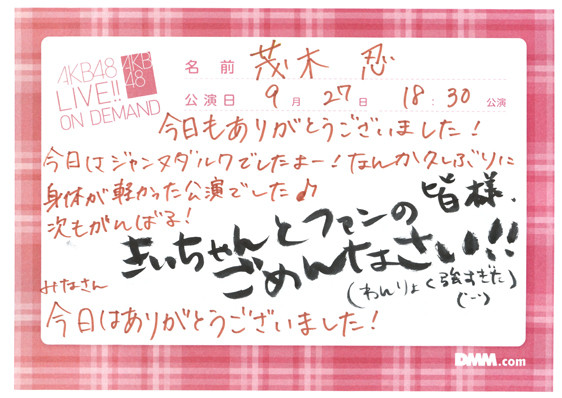 AKB48
LIVE!!
ON DEMAND
AKB
48
名前 茂木 忍
公演日 9月 27日 18:30 公演
今日もありがとうございました!
今日はジャンヌダルクでしたまー!なんか久しぶりに
身体が軽かった公演でした♪
次もがんばる!
きぃちゃんとファンの皆様、
ごめんなさい!!
(わんりょく強すぎた)
(・・;)
みなさん
今日はありがとうございました!
DMM.com